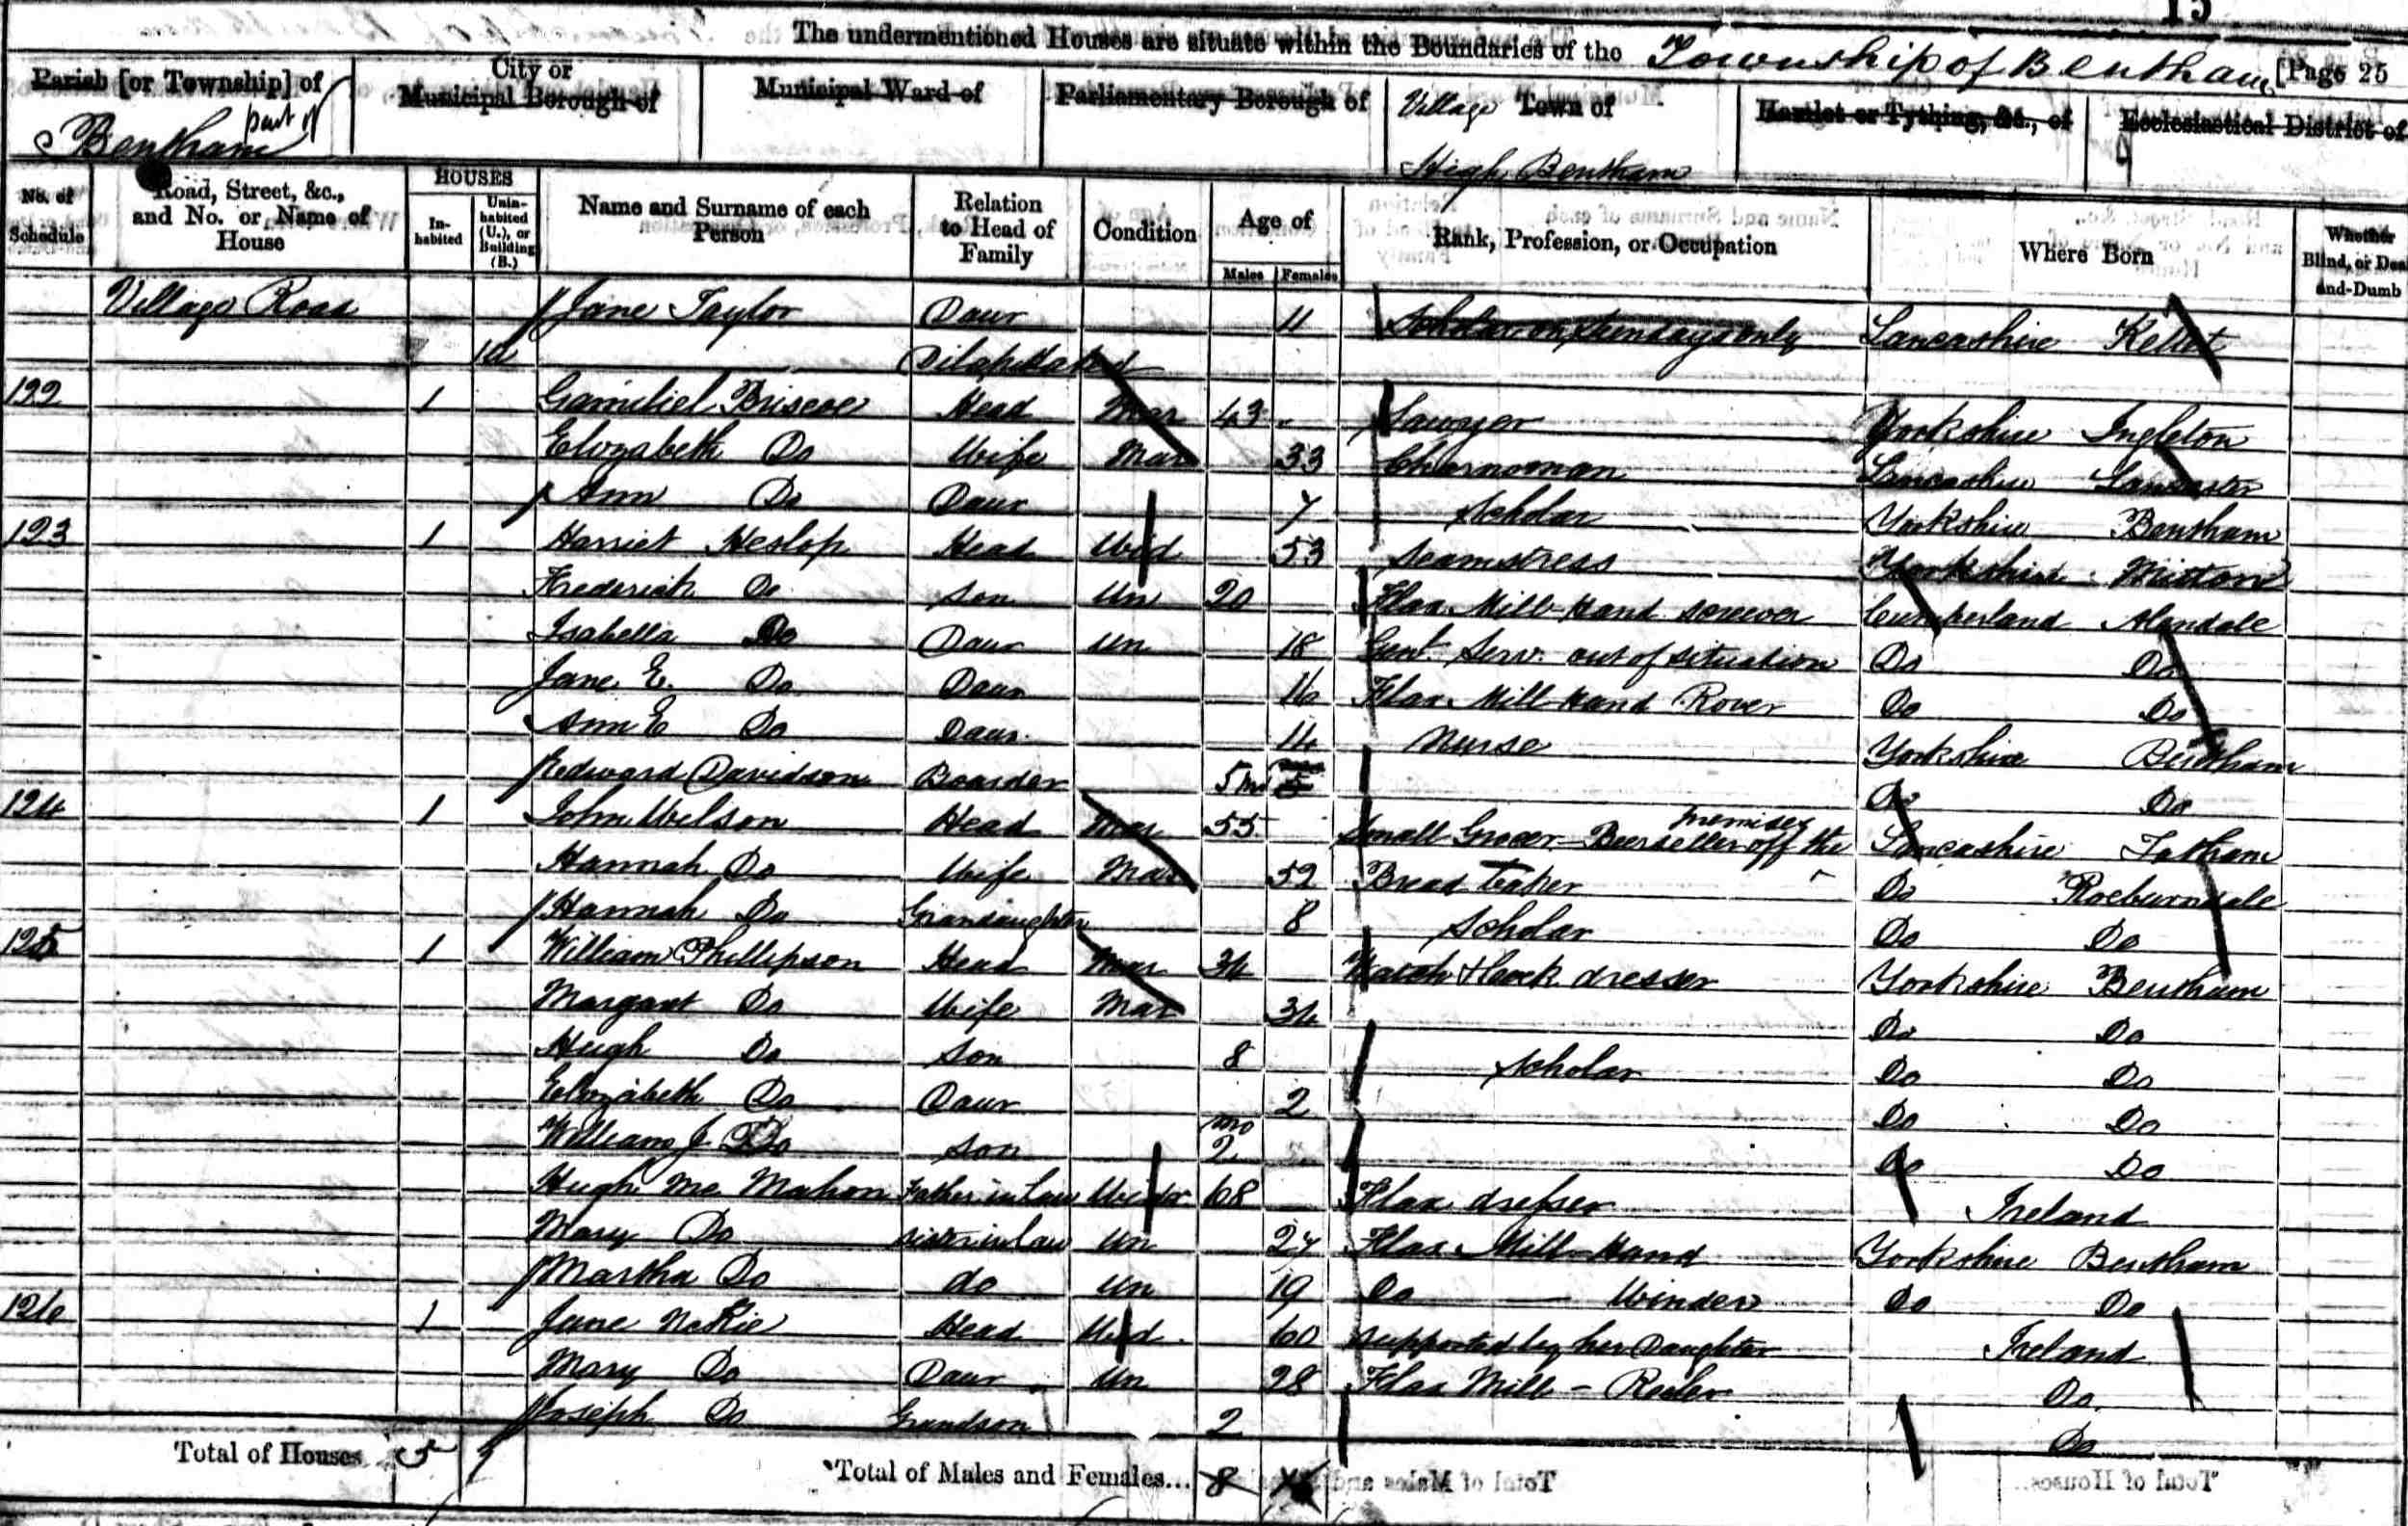 15
The undermentioned Houses are situate within the Boundaries of the Township of Bentham [Page 25
Parish [or Township] of part of Bentham
City or Municipal Borough of
Municipal Ward of
Parliamentary Borough of
Village Town of High Bentham
Hamlet or Tything, &c., of
Ecclesiastical District of
No. of Schedule
Road, Street, &c., and No. or Name of House
HOUSES
In-habited
Unin-habited (U.), or Building (B.)
Name and Surname of each Person
Relation to Head of Family
Condition
Age of
Males Females
Rank, Profession, or Occupation
Where Born
Whether Blind, or Deaf-and-Dumb
Village Road Jane Taylor Daur 11 Scholar on Sundays only Lancashire Kellet
Dilapidated
122 1 Gamiliel Briscoe Head Mar 43 Sawyer Yorkshire Ingleton
Elizabeth Do Wife Mar 33 Charwoman Lancashire Lancaster
Ann Do Daur 7 Scholar Yorkshire Bentham
123 1 Harriet Heslop Head Wid 53 Seamstress Yorkshire Mitton
Frederick Do Son Un 20 Flax Mill Hand Cumberland Alendale
Isabella Do Daur Un 18 Genl Serv. out of situation Do Do
Jane E. Do Daur 16 Flax Mill Hand Rover Do Do
Ann E Do Daur 14 Nurse Yorkshire Bentham
Redward Davidson Boarder 5 m Do Do
124 1 John Wilson Head Mar 55 Small Grocer - Beerseller off the premises Lancashire Tatham
Hannah Do Wife Mar 52 Bread Baker Do Roeburndale
Hannah Do Grandaughter 8 Scholar Do Do
125 1 William Phillipson Head Mar 34 Watch & Clock dresser Yorkshire Bentham
Margaret Do Wife Mar 34 Do Do
Hugh Do Son 8 Scholar Do Do
Elizabeth Do Daur 2 Do Do
William J. Do Son mo 2 Do Do
Hugh Mc Mahon Father in law Widr 68 Flax dresser Ireland
Mary Do Sister in law Un 24 Flax Mill Hand Yorkshire Bentham
Martha Do do Un 19 Do Winder Do Do
126 1 Jane McKie Head Wid. 60 Supported by her Daughter Ireland
Mary Do Daur Un 28 Flax Mill - Reeler Do
Joseph Do Grandson 2 Do
Total of Houses 5
Total of Males and Females... 8